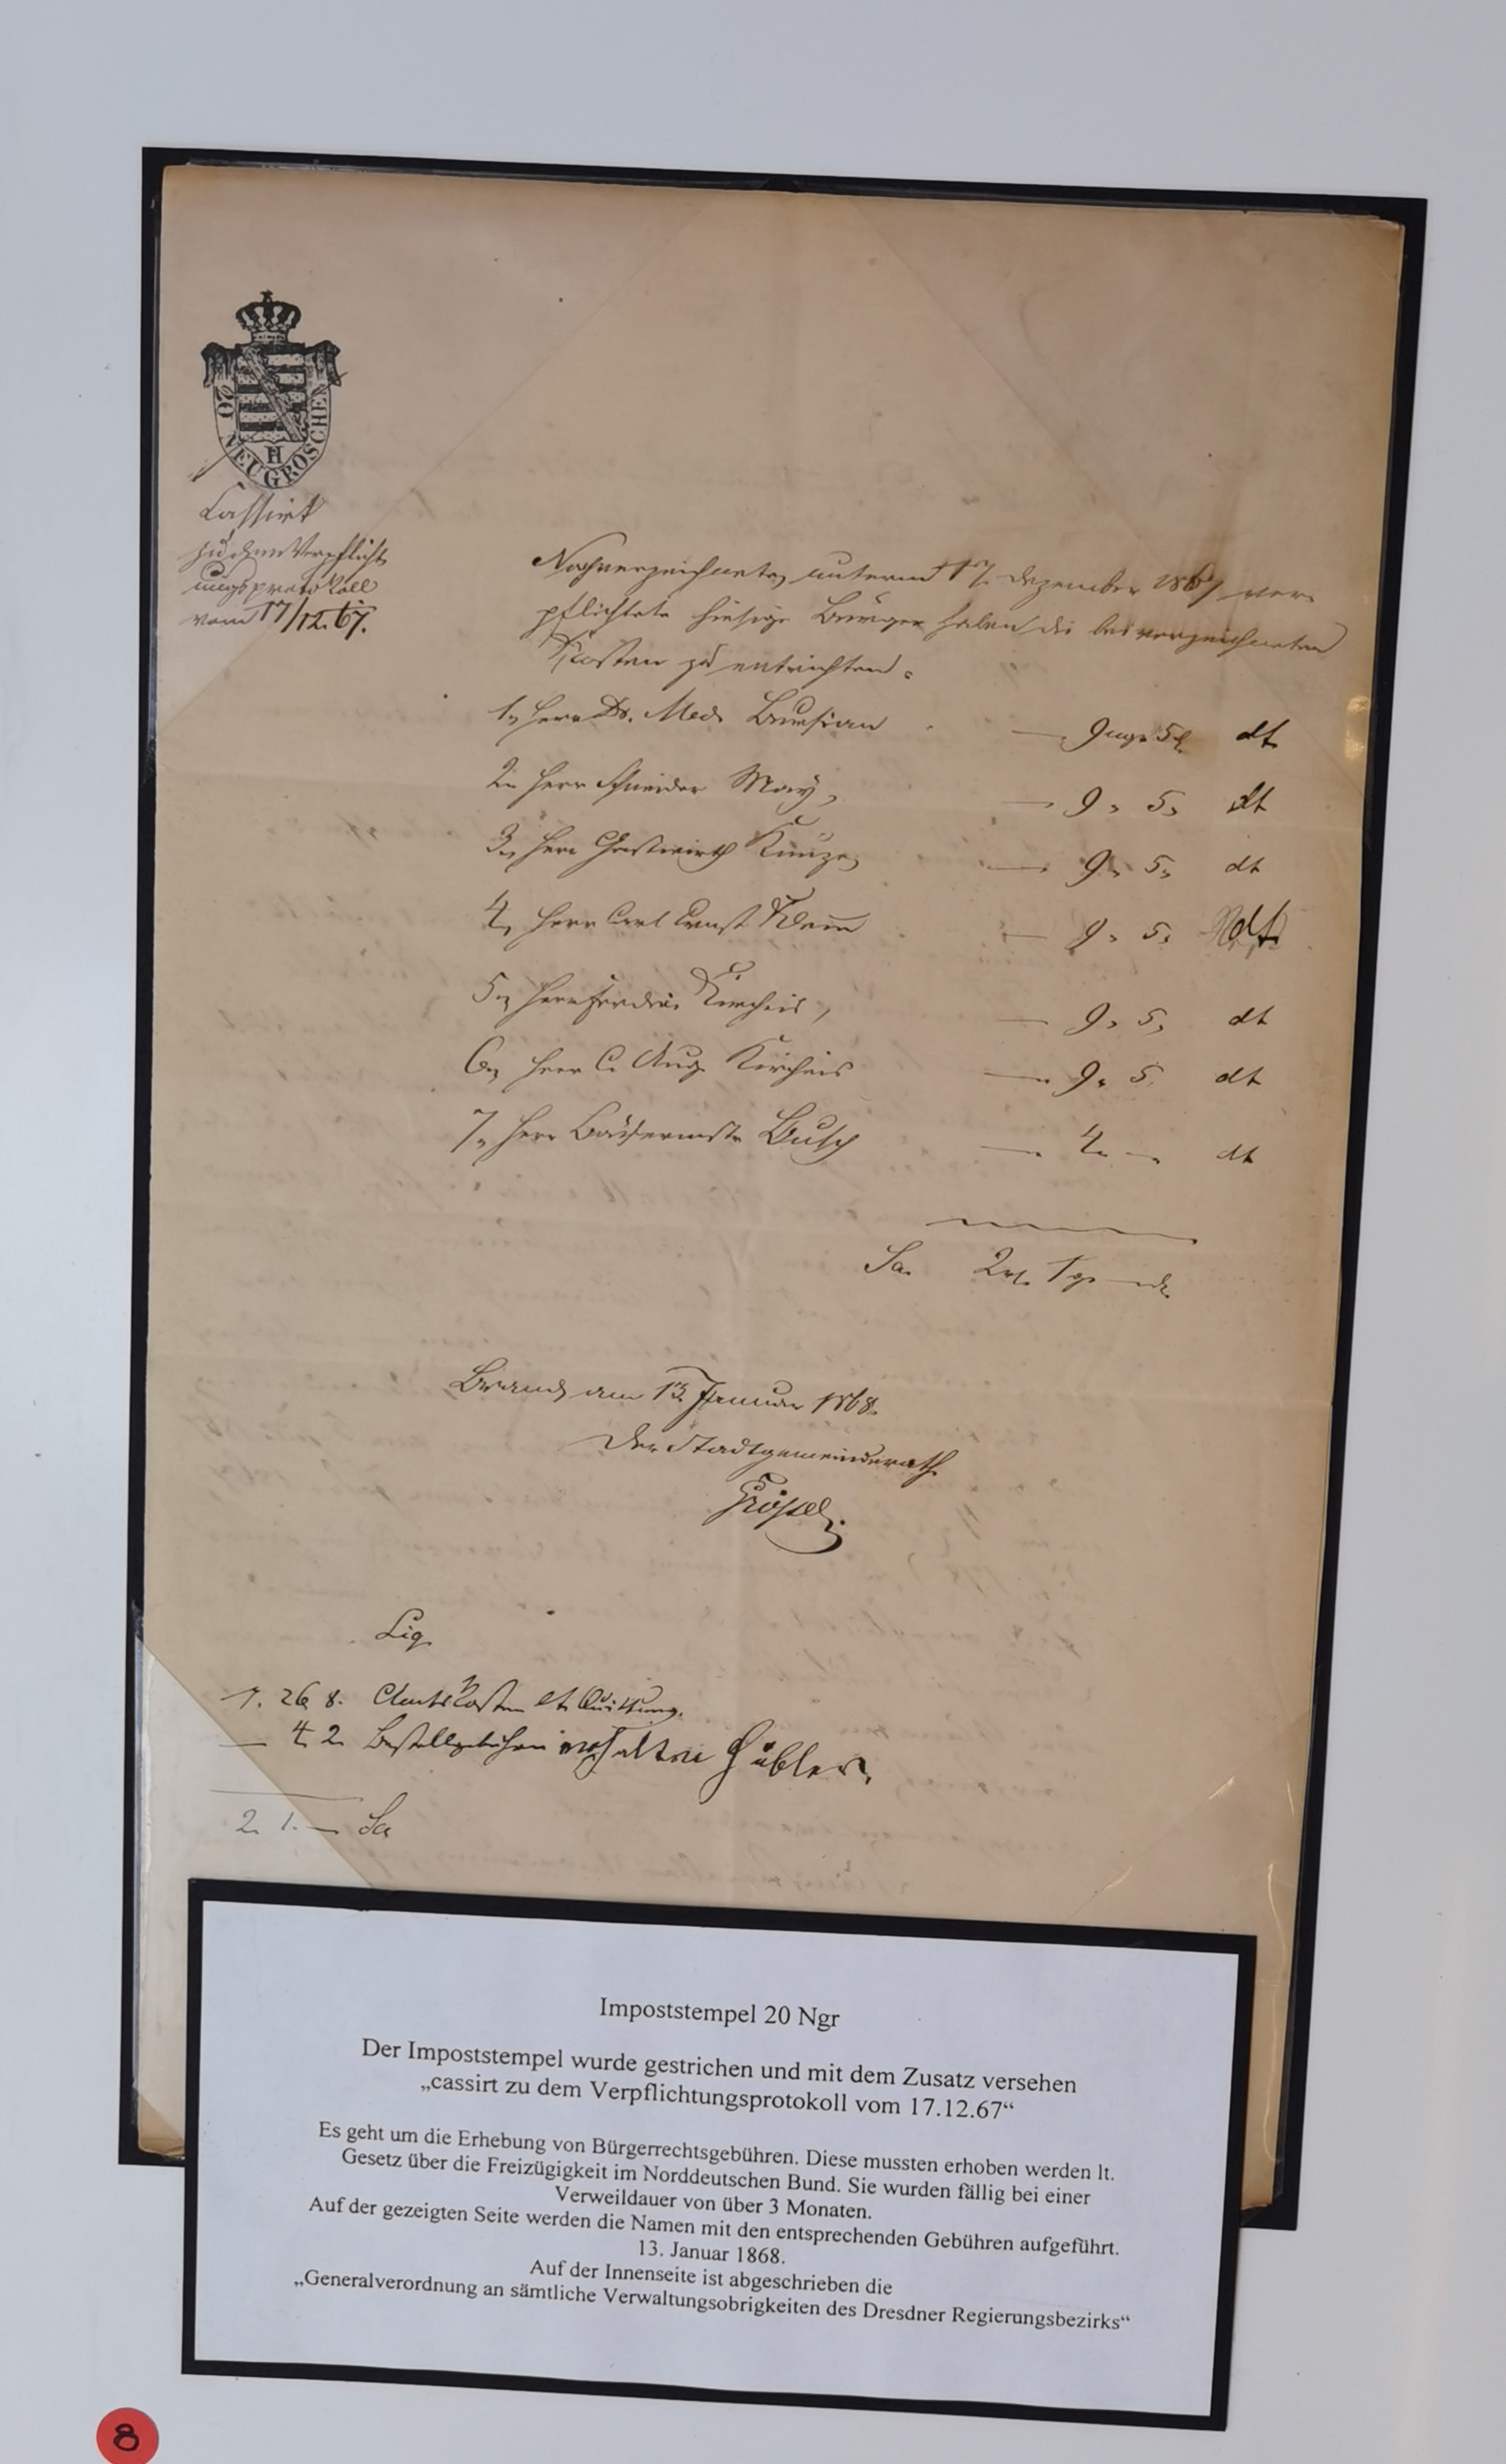 20 NEUGROSCHEN
H
Cassirt
zu dem Verpflicht
ungsprotokoll
vom 17/12. 67.
Nachverzeichnete, unterm 17. Dezember 1867 ver-
pflichtete hiesige Bürger haben die beiverzeichneten
Kosten zu entrichten.
1., Herr Dr. Med. Bursian — 9 ngr 5 ₰ dt
2., Herr Schneider May, — 9 " 5 " dt
3., Herr Gastwirth Kunze, — 9 " 5 " dt
4., Herr Carl Ernst Klemm — 9 " 5 " dt
5., Herr Kircheis, — 9 " 5 " dt
6., Herr C. Aug. Kircheis — 9 " 5 dt
7., Herr Busch — 4 " — dt
Sa. 2 1
Brand, am 13. Januar 1868.
Der Stadtgemeinderath
Liq.
1. 26. 8. Amtskosten et. Quittung.
— 4. 2. Bestellgebühren erhalten Hübler.
2. 1. — Sa
Impoststempel 20 Ngr
Der Impoststempel wurde gestrichen und mit dem Zusatz versehen
„cassirt zu dem Verpflichtungsprotokoll vom 17.12.67“
Es geht um die Erhebung von Bürgerrechtsgebühren. Diese mussten erhoben werden lt.
Gesetz über die Freizügigkeit im Norddeutschen Bund. Sie wurden fällig bei einer
Verweildauer von über 3 Monaten.
Auf der gezeigten Seite werden die Namen mit den entsprechenden Gebühren aufgeführt.
13. Januar 1868.
Auf der Innenseite ist abgeschrieben die
„Generalverordnung an sämtliche Verwaltungsobrigkeiten des Dresdner Regierungsbezirks“
8